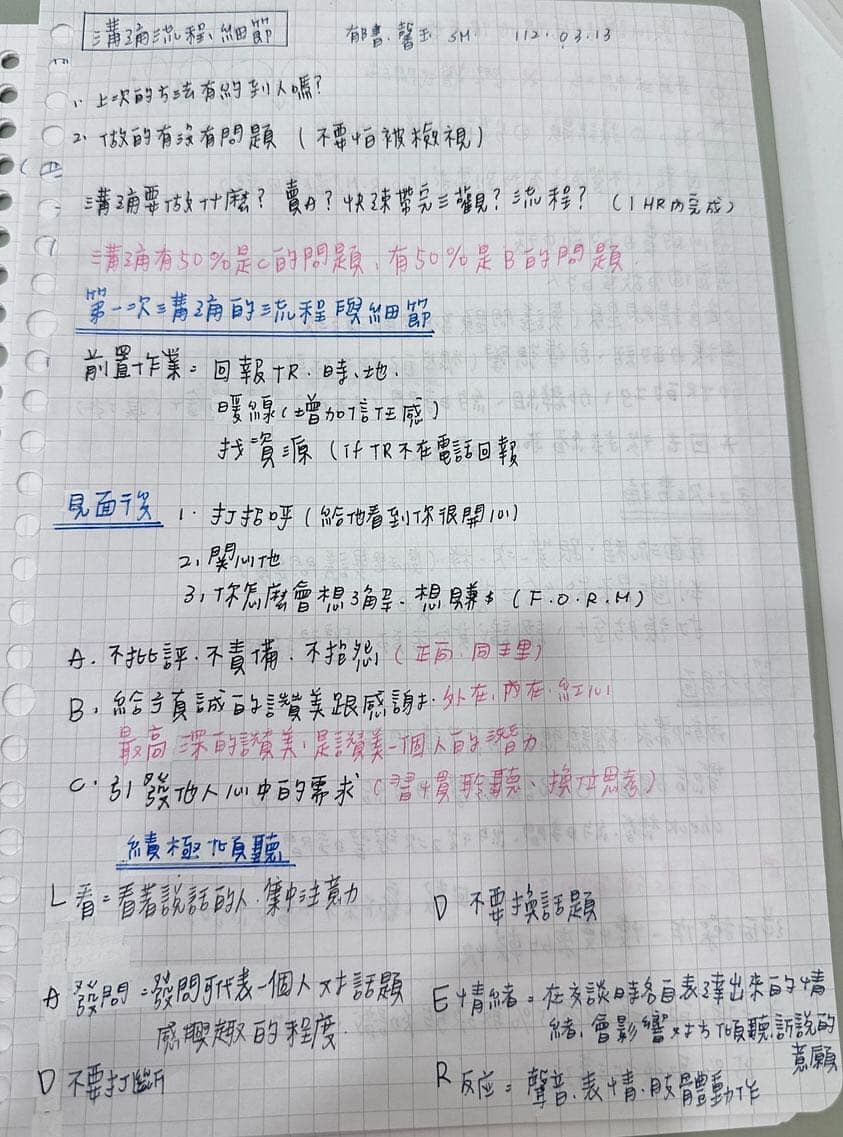 溝通流程、細節 郁書、馨玉 SM. 112.03.13
1. 上次的方法有約到人嗎?
2. 做的有沒有問題 (不要怕被檢視)
溝通要做什麼? 賣A? 快速帶完三觀? 流程? (1 HR內完成)
溝通有50%是C的問題、有50%是B的問題.
第一次溝通的流程與細節
前置作業= 回報TR. 時、地.
暖線(增加信任感)
找資源 (If TR不在電話回報
見面後 1. 打招呼 (給他看到你很開心)
2. 關心他
3. 你怎麼會想了解、想賺$ (F.O.R.M)
A. 不批評.不責備.不抱怨 (正向.同理)
B. 給予真誠的讚美跟感謝. 外在,內在,紅心
最高深的讚美,是讚美一個人的潛力
C. 引發他人心中的需求 (習慣聆聽、換位思考)
績極傾聽
L 看=看著說話的人.集中注意力
D 不要換話題
A 發問=發問可代表一個人對話題
感興趣的程度.
E 情緒=在交談時各自表達出來的情
緒,會影響對方傾聽訴說的
意願
D 不要打斷
R 反应= 聲音.表情.肢體動作